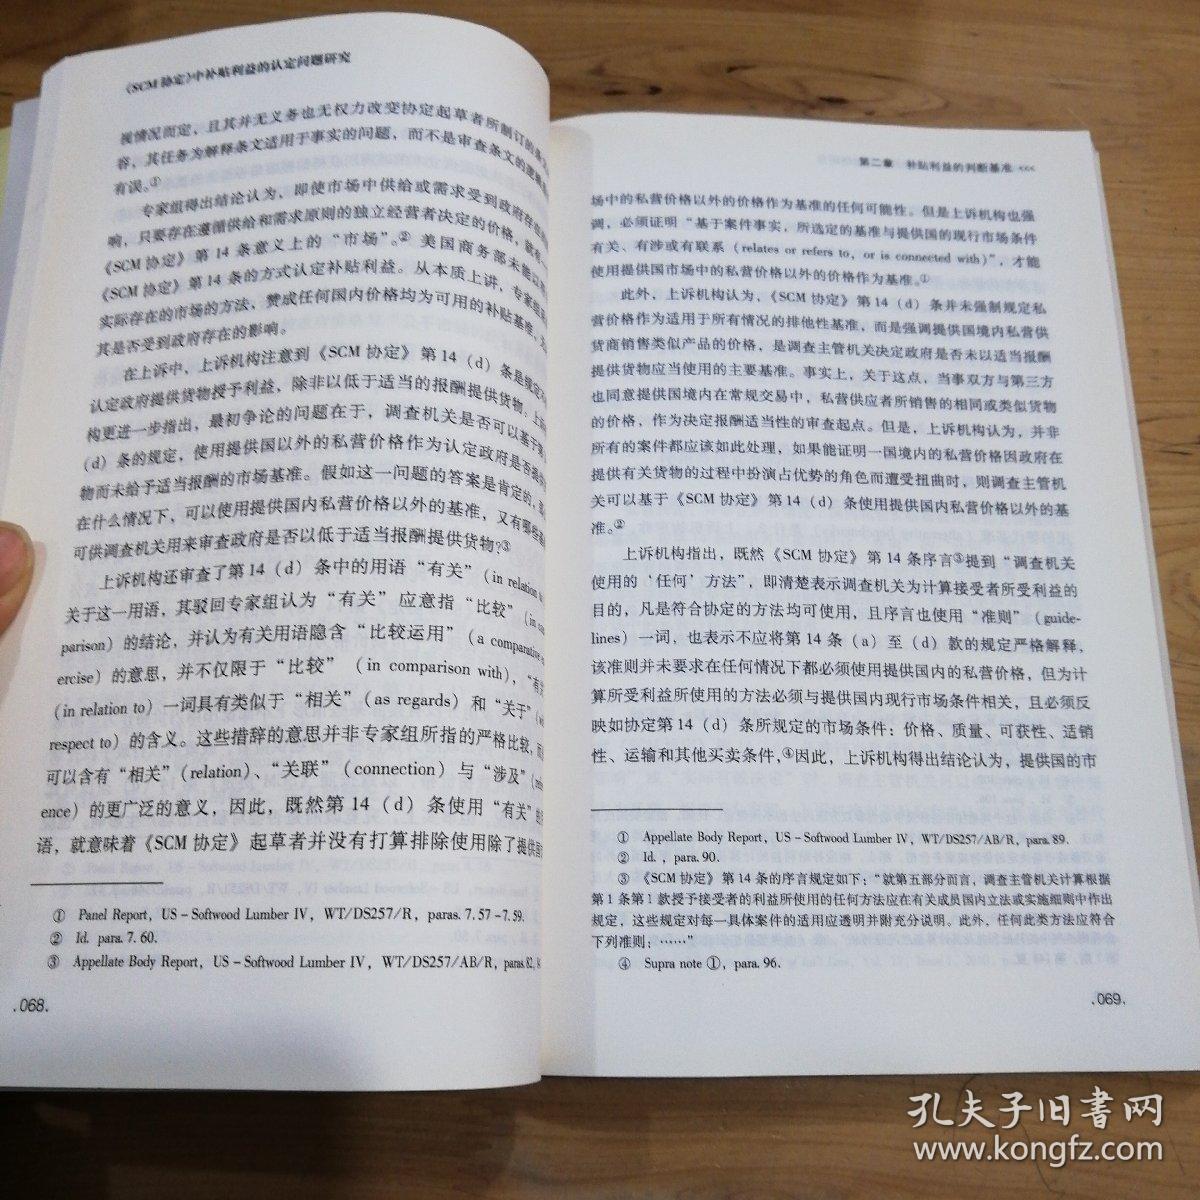 《SCM协定》中补贴利益的认定问题研究
视情况而定，且其并无义务也无权力改变协定起草者所制订的条
容，其任务为解释条文适用于事实的问题，而不是审查条文的逻辑
有误。①
专家组得出结论认为，即使市场中供给或需求受到政府存
响，只要存在遵循供给和需求原则的独立经营者决定的价格，就
《SCM协定》第14条意义上的“市场”。②美国商务部未能
《SCM协定》第14条的方式认定补贴利益。从本质上讲，专家组
实际存在的市场的方法，赞成任何国内价格均为可用的补贴基准，
其是否受到政府存在的影响。
在上诉中，上诉机构注意到《SCM协定》第14（d）条是规定
认定政府提供货物授予利益，除非以低于适当的报酬提供货物。上
构更进一步指出，最初争论的问题在于，调查机关是否可以基于第
（d）条的规定，使用提供国以外的私营价格作为认定政府是否提供
物而未给予适当报酬的市场基准。假如这一问题的答案是肯定的，
在什么情况下，可以使用提供国内私营价格以外的基准，又有哪些
可供调查机关用来审查政府是否以低于适当报酬提供货物?③
上诉机构还审查了第14（d）条中的用语“有关”（in relation
关于这一用语，其驳回专家组认为“有关”应意指“比较”（in
parison）的结论，并认为有关用语隐含“比较运用”（a comparative
ercise）的意思，并不仅限于“比较”（in comparison with），“有
（in relation to）一词具有类似于“相关”（as regards）和“关于”
respect to）的含义。这些措辞的意思并非专家组所指的严格比较，而
可以含有“相关”（relation）、“关联”（connection）与“涉及”
ence）的更广泛的意义，因此，既然第14（d）条使用“有关”
语，就意味着《SCM协定》起草者并没有打算排除使用除了提供国
① Panel Report, US – Softwood Lumber IV, WT/DS257/R, paras. 7.57 – 7.59.
② Id. para. 7.60.
③ Appellate Body Report, US – Softwood Lumber IV, WT/DS257/AB/R, paras. 82,
.068.
第二章 补贴利益的判断基准 <<<
场中的私营价格以外的价格作为基准的任何可能性。但是上诉机构也强
调，必须证明“基于案件事实，所选定的基准与提供国的现行市场条件
有关、有涉或有联系（relates or refers to, or is connected with）”，才能
使用提供国市场中的私营价格以外的价格作为基准。①
此外，上诉机构认为，《SCM协定》第14（d）条并未强制规定私
营价格作为适用于所有情况的排他性基准，而是强调提供国境内私营供
货商销售类似产品的价格，是调查主管机关决定政府是否未以适当报酬
提供货物应当使用的主要基准。事实上，关于这点，当事双方与第三方
也同意提供国境内在常规交易中，私营供应者所销售的相同或类似货物
的价格，作为决定报酬适当性的审查起点。但是，上诉机构认为，并非
所有的案件都应该如此处理，如果能证明一国境内的私营价格因政府在
提供有关货物的过程中扮演占优势的角色而遭受扭曲时，则调查主管机
关可以基于《SCM协定》第14（d）条使用提供国内私营价格以外的基
准。②
上诉机构指出，既然《SCM协定》第14条序言③提到“调查机关
使用的‘任何’方法”，即清楚表示调查机关为计算接受者所受利益的
目的，凡是符合协定的方法均可使用，且序言也使用“准则”（guide-
lines）一词，也表示不应将第14条（a）至（d）款的规定严格解释，
该准则并未要求在任何情况下都必须使用提供国内的私营价格，但为计
算所受利益所使用的方法必须与提供国内现行市场条件相关，且必须反
映如协定第14（d）条所规定的市场条件：价格、质量、可获性、适销
性、运输和其他买卖条件，④因此，上诉机构得出结论认为，提供国的市
① Appellate Body Report, US – Softwood Lumber IV, WT/DS257/AB/R, para. 89.
② Id. , para. 90.
③ 《SCM协定》第14条的序言规定如下：“就第五部分而言，调查主管机关计算根据
第1条第1款授予接受者的利益所使用的任何方法应在有关成员国内立法或实施细则中作出
规定，这些规定对每一具体案件的适用应透明并附充分说明。此外，任何此类方法应符合
下列准则：……”
④ Supra note ①, para. 96.
.069.
孔夫子旧书网
www.kongfz.com